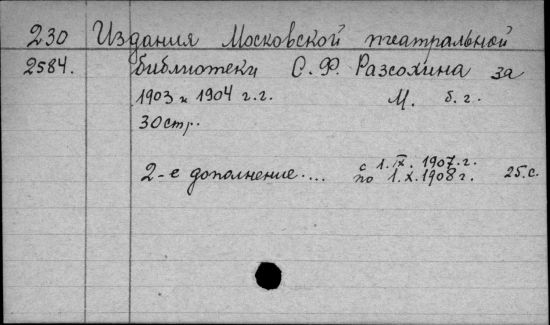 230 Издания Московской театральной
2584. библиотеки С. Ф. Разсохина за
1903 и 1904 г.г. М. б. г.
30 стр.
2-е дополнение.... с 1. IX. 1907. г.
по 1. X. 1908 г. 25. с.